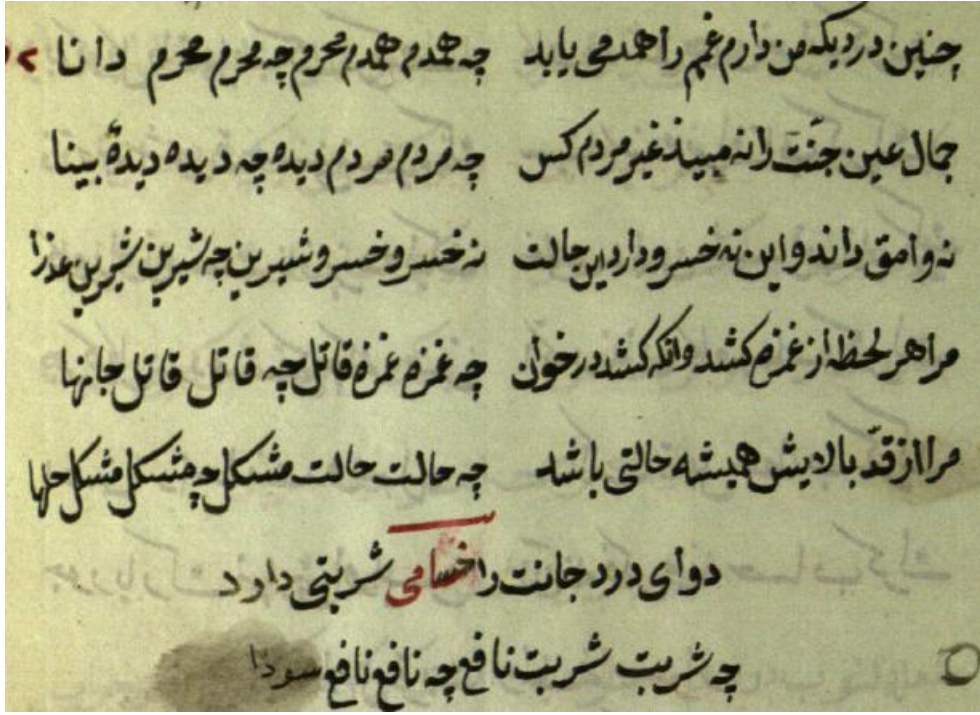 چنین دردیکه من دارم غمم را همدمی یابد چه همدم همدم محرم چه محرم محرم دانا
جمال عین جنّت را نه میبیند غیر مردم کس چه مردم مردم دیده چه دیده دیدهٔ بینا
نه وامق داند و این نه خسرو دارد این حالت نه خسرو خسرو شیرین چه شیرین شیرین عذرا
مرا هر لحظه از غمزه کشد وانکه کشد در خون چه غمزه غمزه قاتل چه قاتل قاتل جانها
مرا از قدّ بالایش همیشه حالتی باشد چه حالت حالت مشکل چه مشکل مشکل حلها
دوای درد جانت را خسامی شربتی دارد
چه شربت شربت نافع چه نافع نافع سودا